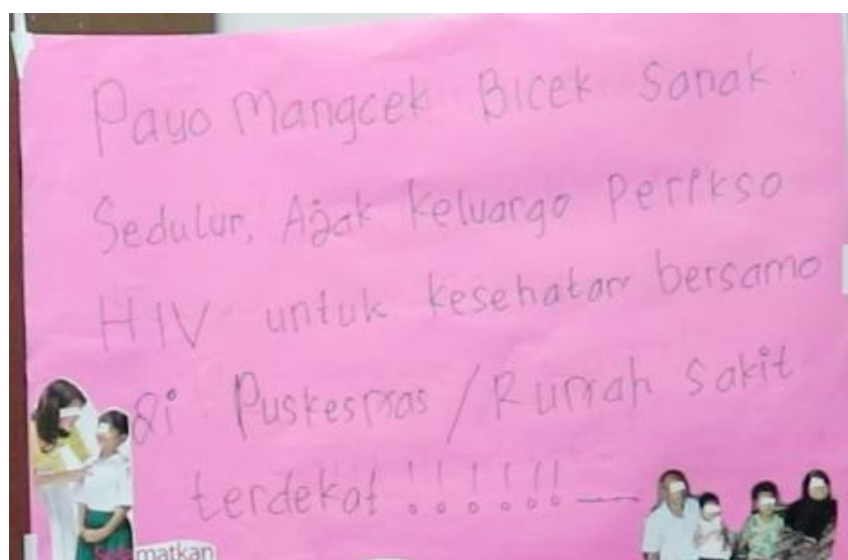 Payo Mangcek Bicek Sanak
Sedulur, Ajak Keluargo Perikso
HIV untuk kesehatan bersamo
di Puskesmas / Rumah Sakit
terdekat !!!!!!
matkan